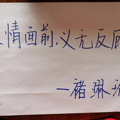 情面前,义无反顾
—褚琳